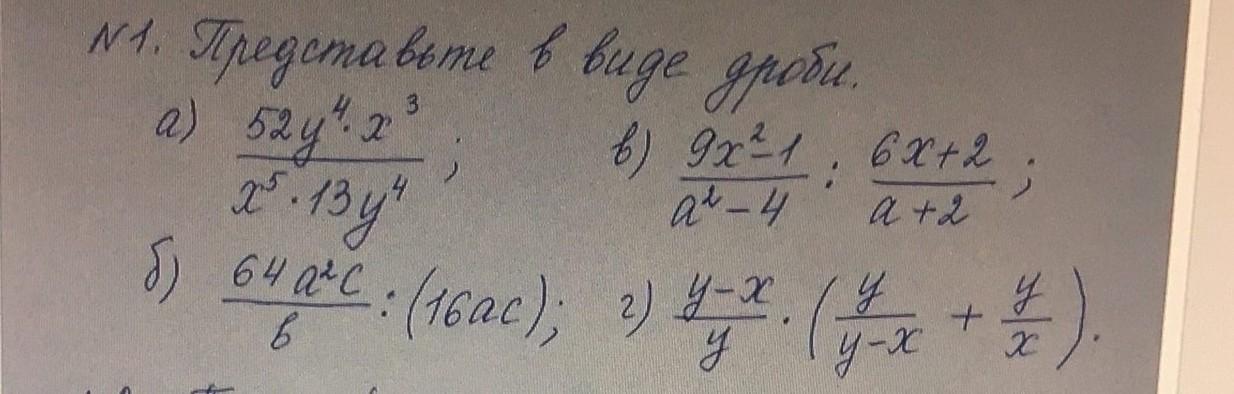 N1. Представьте в виде дроби.
а) \frac{52y^4 \cdot x^3}{x^5 \cdot 13y^4};
в) \frac{9x^2-1}{a^2-4} : \frac{6x+2}{a+2};
б) \frac{64a^2c}{b} : (16ac);
г) \frac{y-x}{y} \cdot (\frac{y}{y-x} + \frac{y}{x}).